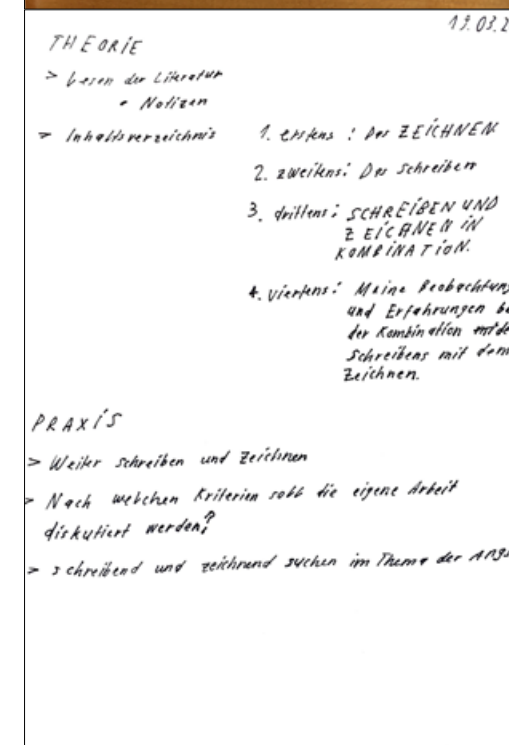 19.03.2
THEORIE
> Lesen der Literatur
• Notizen
> Inhaltsverzeichnis
1. erstens : Das ZEICHNEN
2. zweitens: Das Schreiben
3. drittens: SCHREIBEN UND
ZEICHNEN IN
KOMBINATION.
4. viertens: Meine Beobachtung
und Erfahrungen be
der Kombination de
Schreibens mit dem
Zeichnen.
PRAXIS
> Weiter schreiben und Zeichnen
> Nach welchen Kriterien soll die eigene Arbeit
diskutiert werden?
> schreibend und zeichnend suchen im Thema der Angs